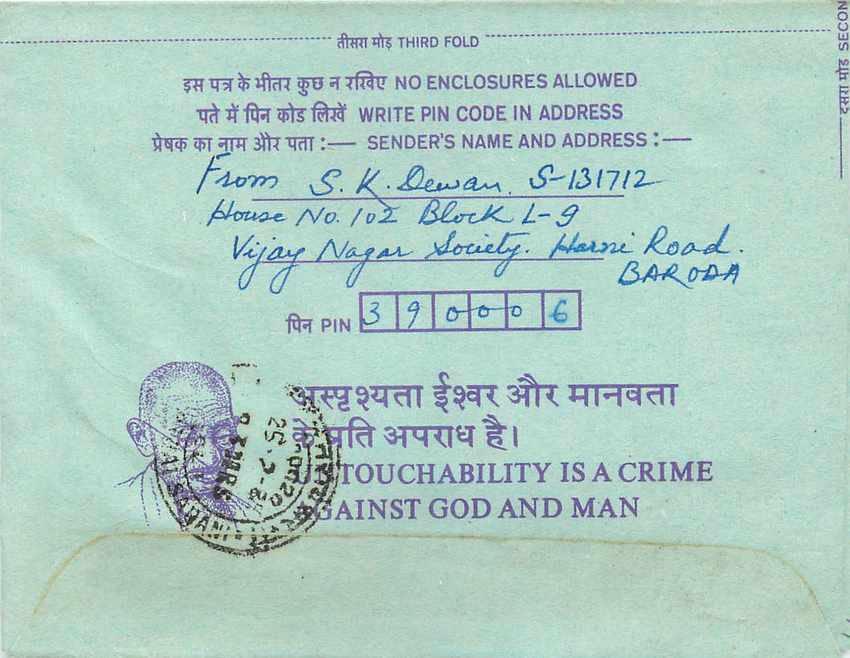 तीसरा मोड़ THIRD FOLD
दूसरा मोड़ SECON
इस पत्र के भीतर कुछ न रखिए NO ENCLOSURES ALLOWED
पते में पिन कोड लिखें WRITE PIN CODE IN ADDRESS
प्रेषक का नाम और पता :— SENDER'S NAME AND ADDRESS :—
From S. K. Dewan. S-131712
House No. 102 Block L-9
Vijay Nagar Society. Harni Road.
BARODA
पिन PIN 390006
अस्पृश्यता ईश्वर और मानवता
के प्रति अपराध है।
UNTOUCHABILITY IS A CRIME
AGAINST GOD AND MAN